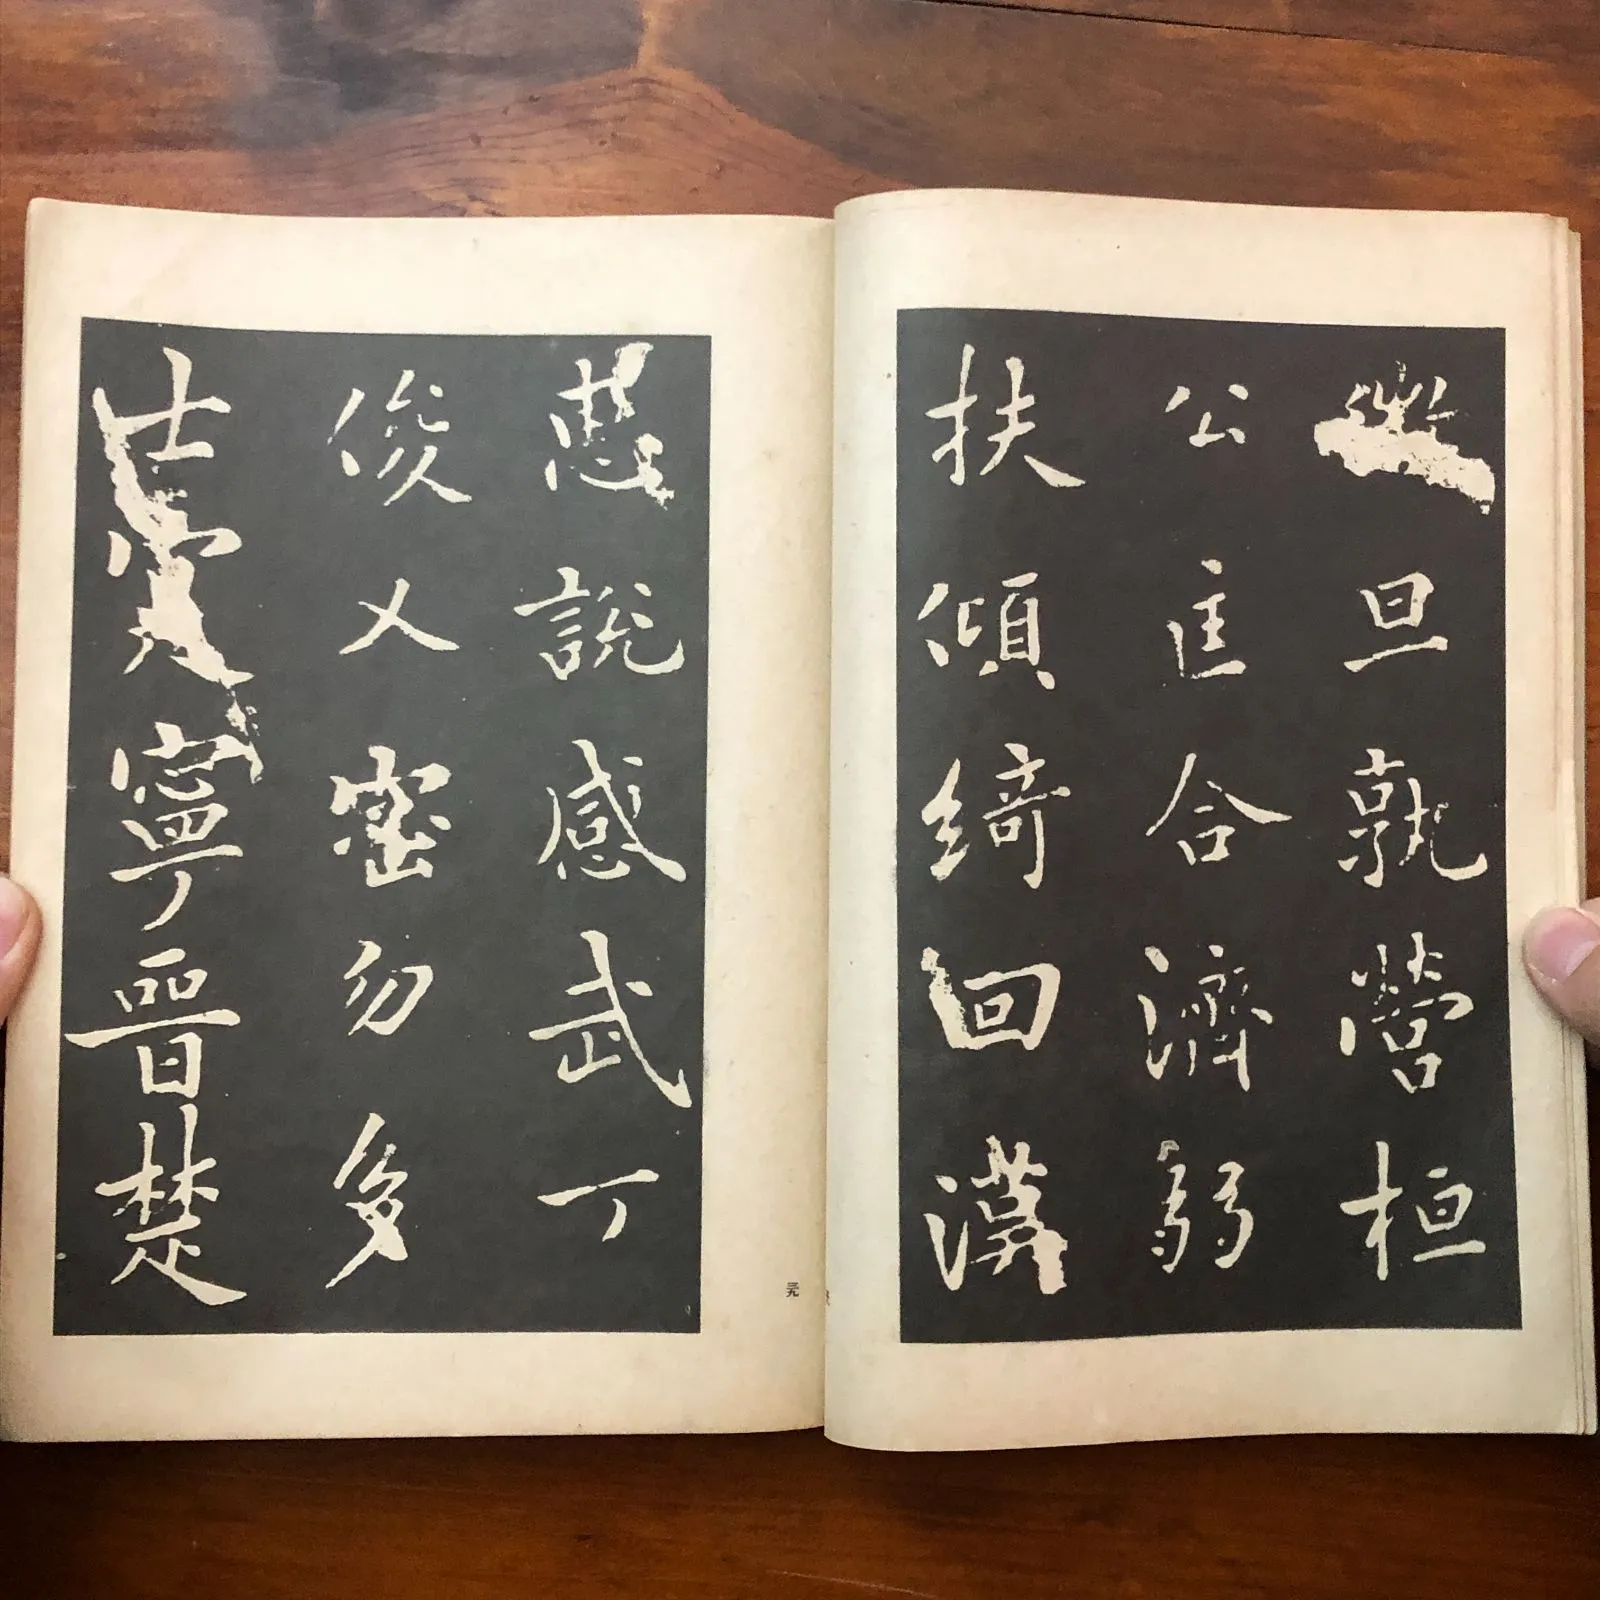 微旦孰營桓
公匡合濟弱
扶傾綺回漢
惠說感武丁
俊乂密勿多
士寔寧晉楚
三九